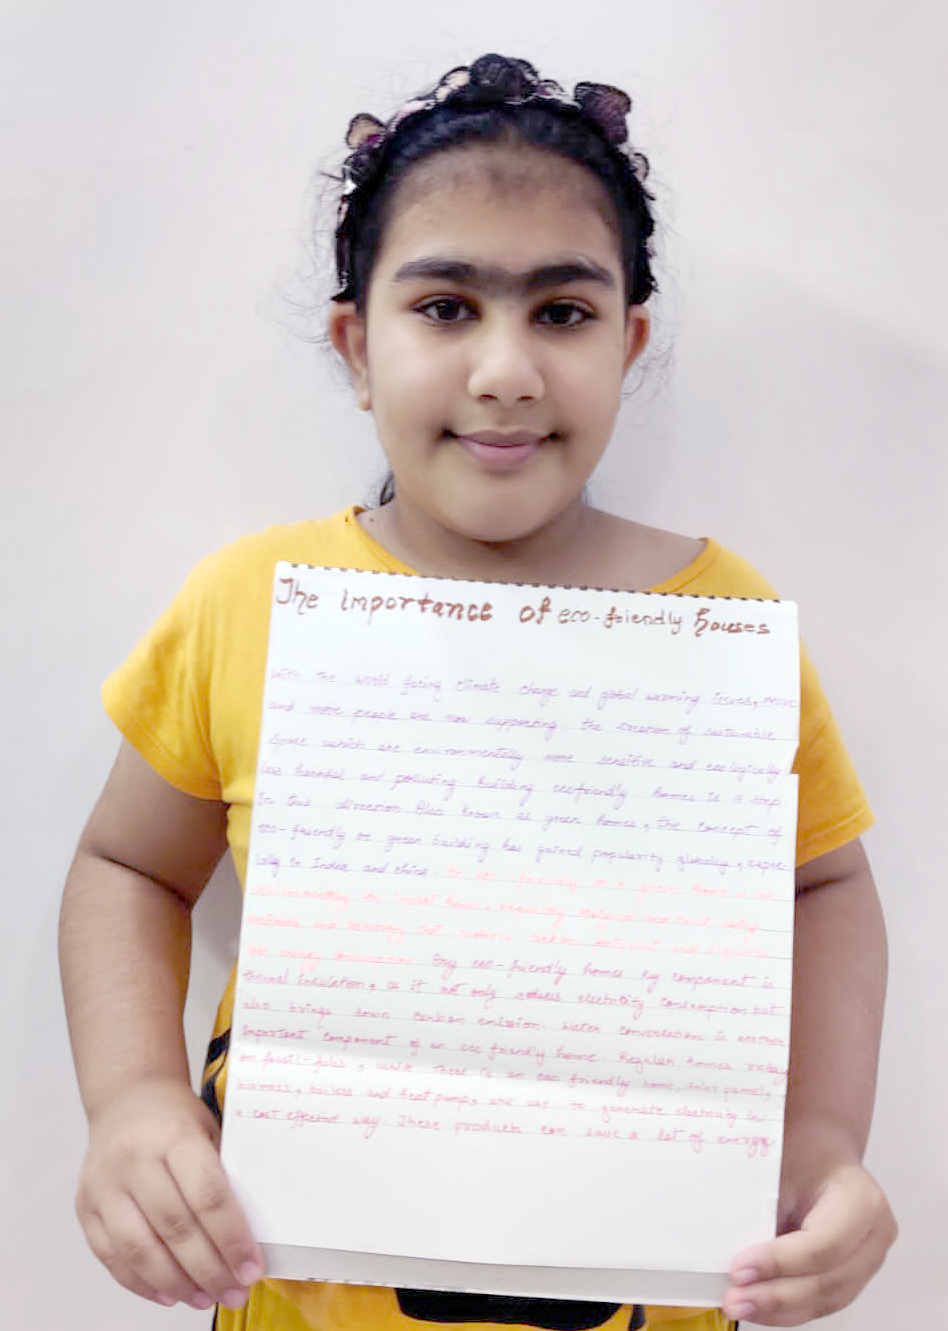 The importance of eco-friendly houses
With the world facing climate change and global warming issues, more
and more people are now supporting the creation of sustainable
space which are environmentally more sensitive and ecologically
less harmful and polluting. Building ecofriendly homes is a step
In this direction. Also known as green homes, the concept of
eco-friendly or green building has gained popularity globally, espec-
ially in India and china. friendly green home is
carbon
energy consumption. Any eco-friendly homes key component is
thermal insulation, as it not only reduces electricity consumption but
also brings down carbon emission. Water conversation is another
Important component of an eco friendly home. Regular homes relay
on fossil-fuels, while there is an eco friendly home, solar panel,
biomass, boilers and heat pump, are use to generate electricity in
a cost effective way. These products can save a lot of energy.